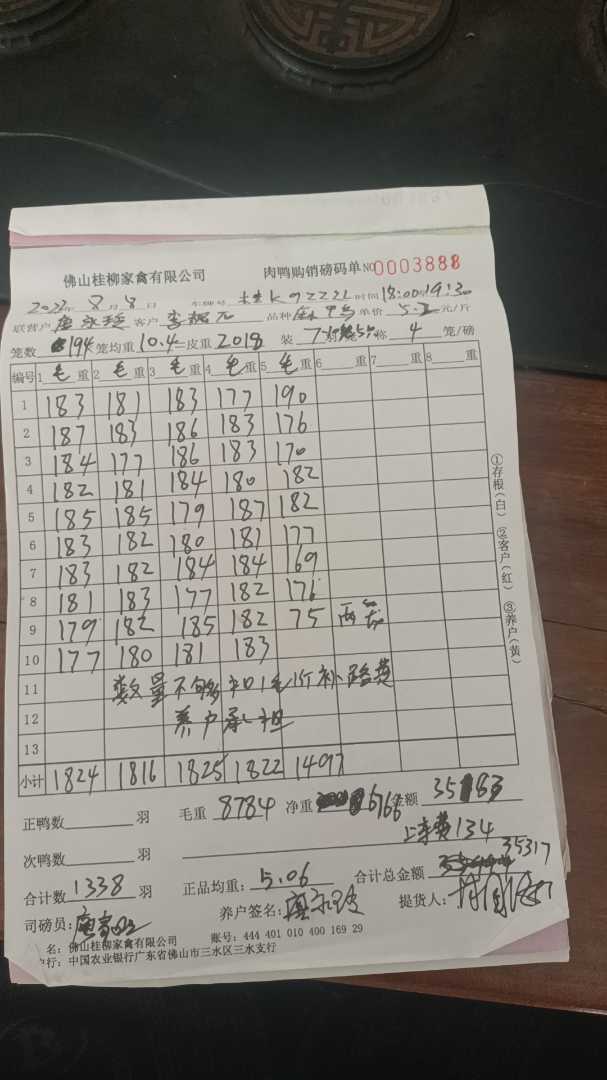 佛山桂柳家禽有限公司 肉鸭购销磅码单 NO 0003888
2022年 8月8日 时间 18:00 19:30
联营户 客户 品种 单价 元/斤
笼数 194 笼均重 10.4 =皮重 2018 装 7 称 4 笼/磅
编号 1 毛 重 2 毛 重 3 毛 重 4 毛 重 5 毛 重 6 重 7 重 8 重
1 183 181 183 177 190
2 187 183 186 183 176
3 184 177 186 183 170
4 182 181 184 180 182
5 185 185 179 187 182
6 183 182 180 181 177
7 183 182 184 184 169
8 181 183 177 182 176
9 179 182 185 182 75 两笼
10 177 180 181 183
11 数量不够扣1毛1斤补路费
12 养户承担
13
小计 1824 1816 1825 1822 1497
正鸭数 羽 毛重 8784 净重 6766 金额 35183
上车费134
次鸭数 羽
35317
合计数 1338 羽 正品均重: 5.06 合计总金额
司磅员: 养户签名: 提货人:
名: 佛山桂柳家禽有限公司 账号: 444 401 010 400 169 29
户行: 中国农业银行广东省佛山市三水区三水支行
①存根(白) ②客户(红) ③养户(黄)